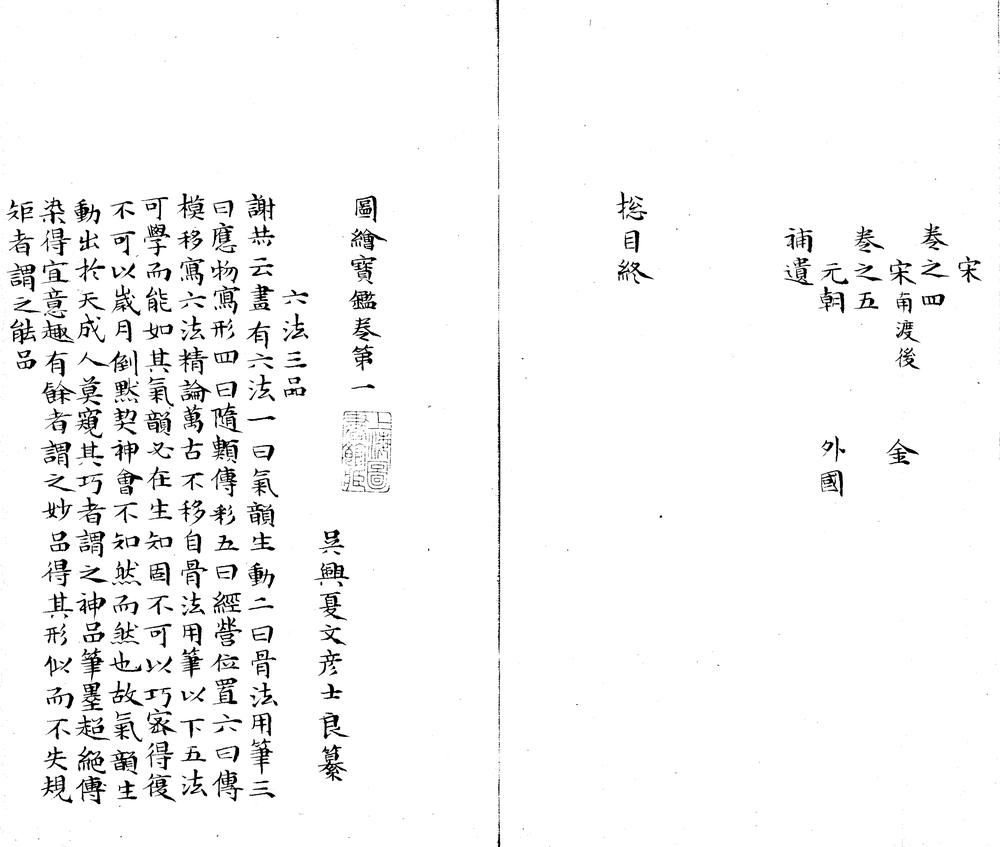 宋
卷之四
宋南渡後 金
卷之五
元朝 外國
補遺
総目終
圖繪寶鑑卷第一
上海圖書館藏
吳興夏文彦士良纂
六法三品
謝赫云畫有六法一曰氣韻生動二曰骨法用筆三
曰應物寫形四曰隨類傳彩五曰經營位置六曰傳
模移寫六法精論萬古不移自骨法用筆以下五法
可學而能如其氣韻必在生知固不可以巧密得復
不可以歲月倒黙契神會不知然而然也故氣韻生
動出於天成人莫窺其巧者謂之神品筆墨超絶傳
染得宜意趣有餘者謂之妙品得其形似而不失規
矩者謂之能品